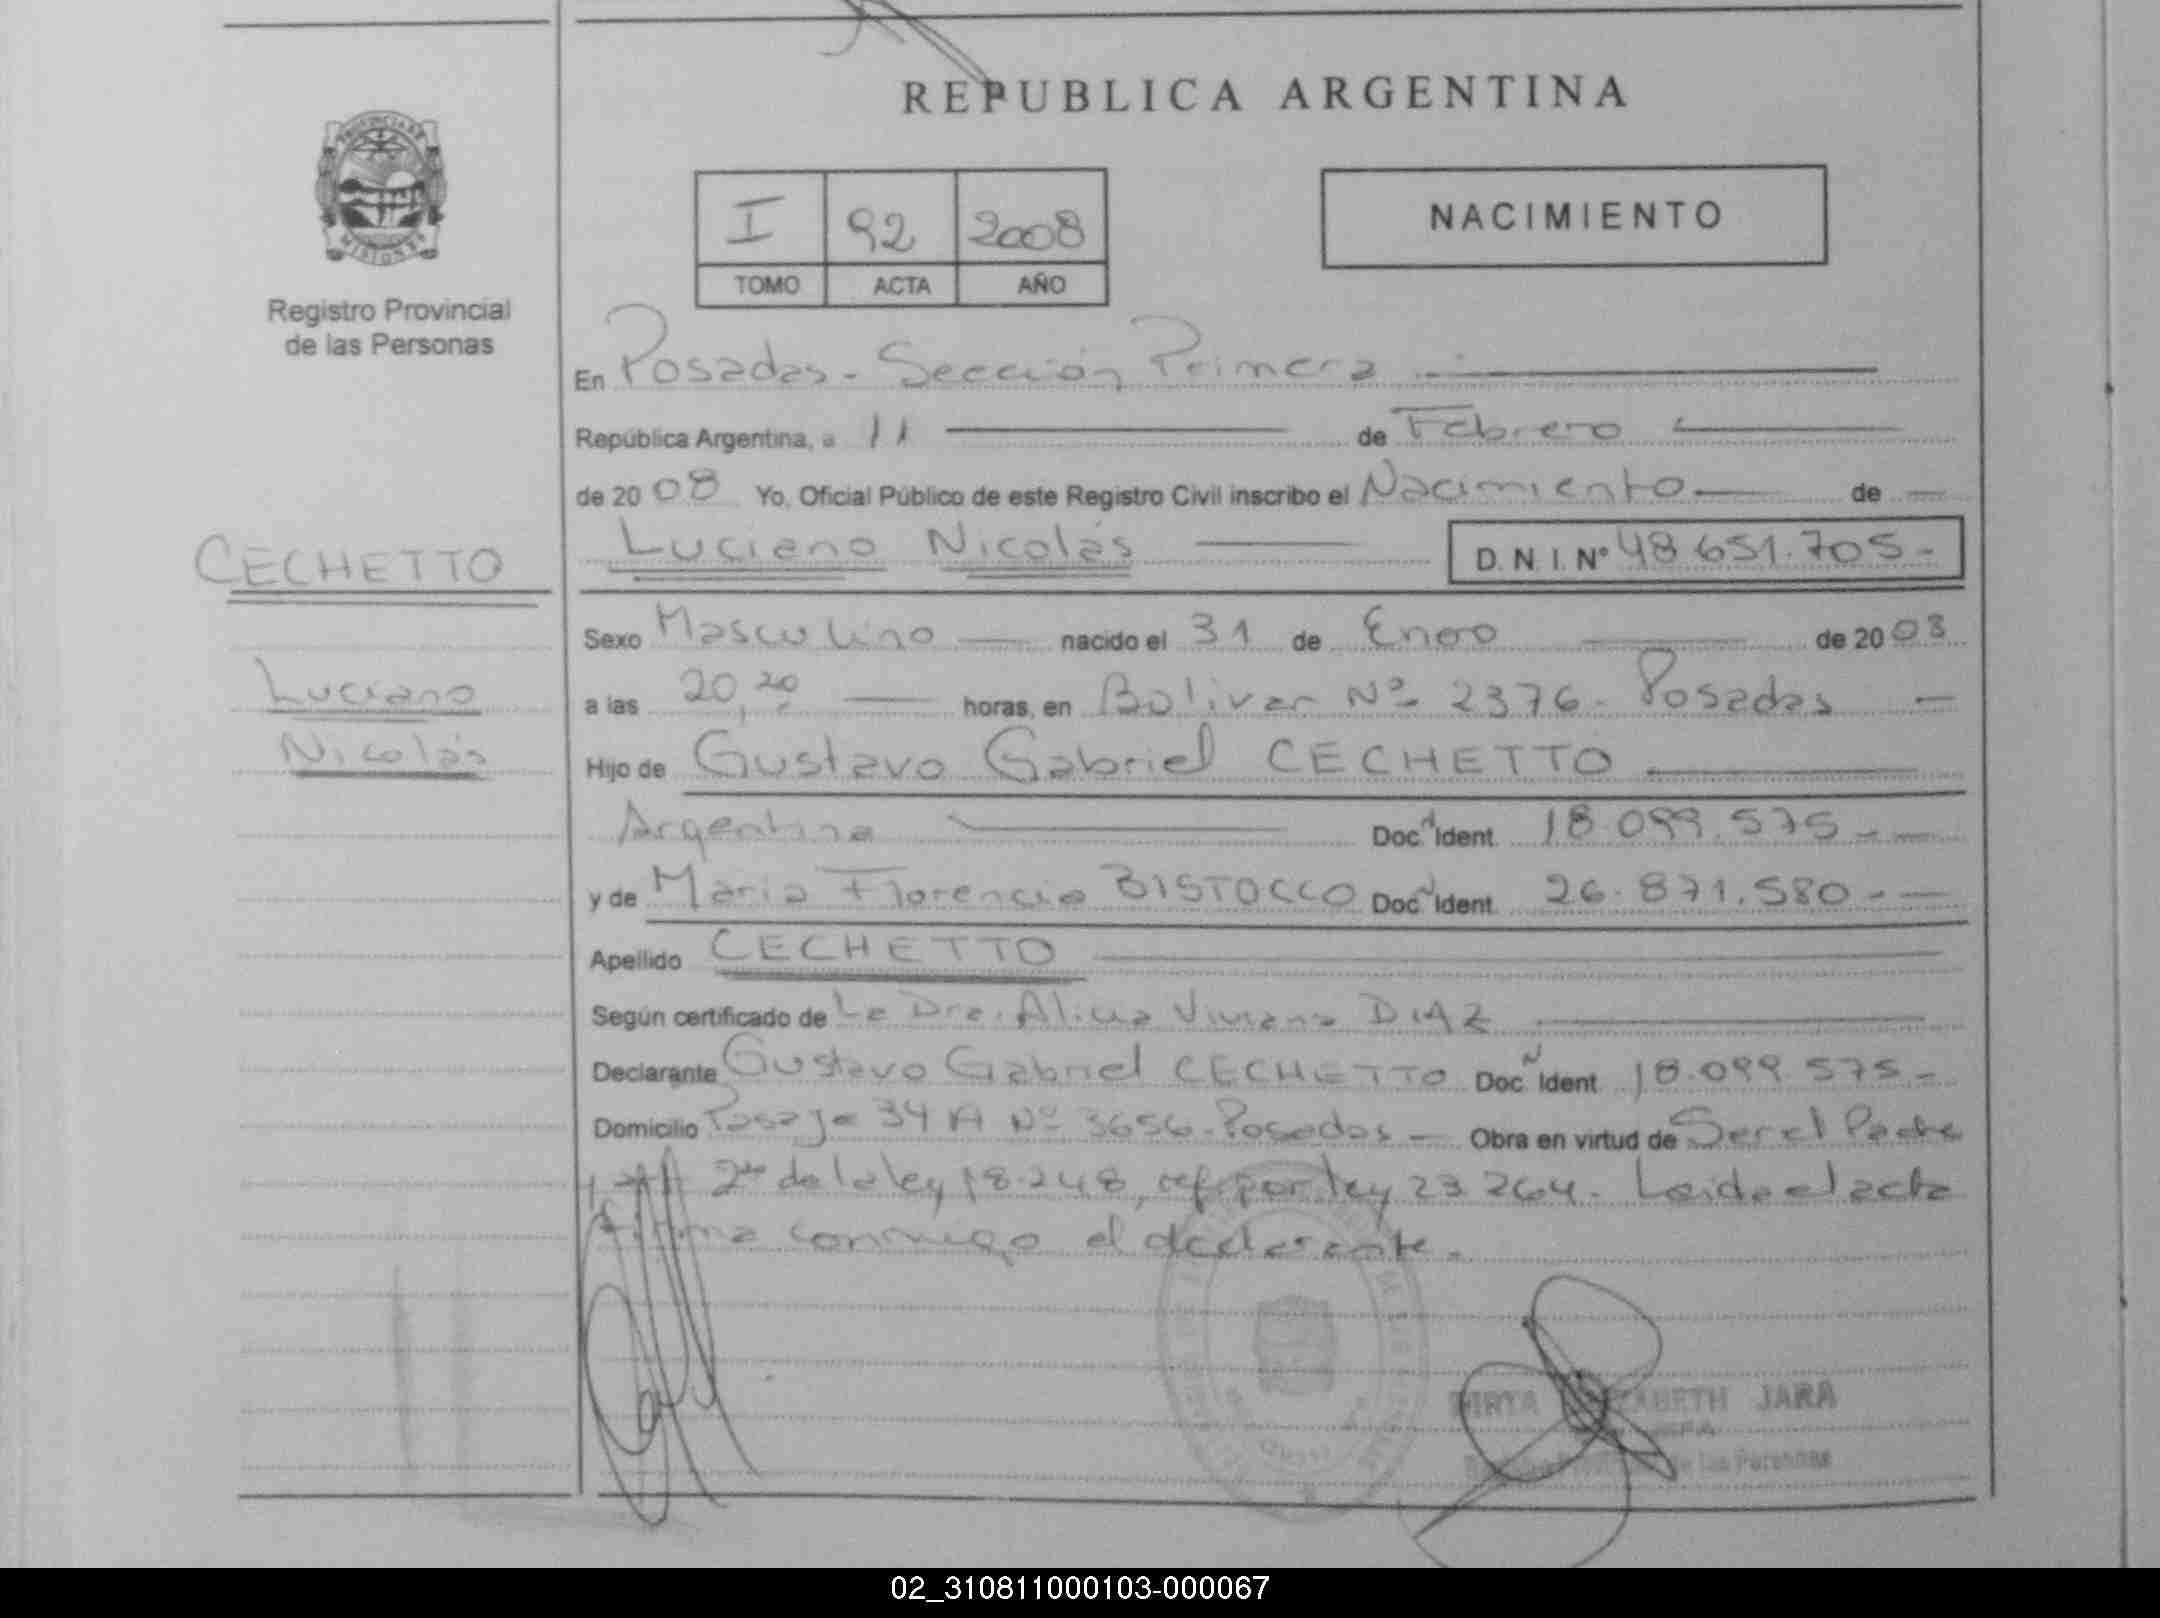 REPUBLICA ARGENTINA
PROVINCIA DE
MISIONES
Registro Provincial
de las Personas
I 92 2008
TOMO ACTA AÑO
NACIMIENTO
En Posadas - Sección Primera
República Argentina, a 11 de Febrero
de 2008 Yo, Oficial Público de este Registro Civil inscribo el Nacimiento de
CECHETTO
Luciano Nicolás D. N. I. Nº 48.651.705.-
Sexo Masculino nacido el 31 de Enero de 2008
Luciano
a las 20,20 horas, en Bolivar Nº 2376. Posadas
Nicolás
Hijo de Gustavo Gabriel CECHETTO
Argentina Doc. Ident. 18.099.575.-
y de Maria Florencia BISTOCCO Doc. Ident. 26.871.580.-
Apellido CECHETTO
Según certificado de La Dra. Alicia Viviana DIAZ
Declarante Gustavo Gabriel CECHETTO Doc. Ident. 18.099.575.-
Domicilio Pasaje 34 A Nº 3656. Posadas Obra en virtud de Ser el Padre
2do de la ley 18.248, ref. por ley 23.264. Leida el acta
firma conmigo el declarante.
JARA
de las Personas
02_310811000103-000067